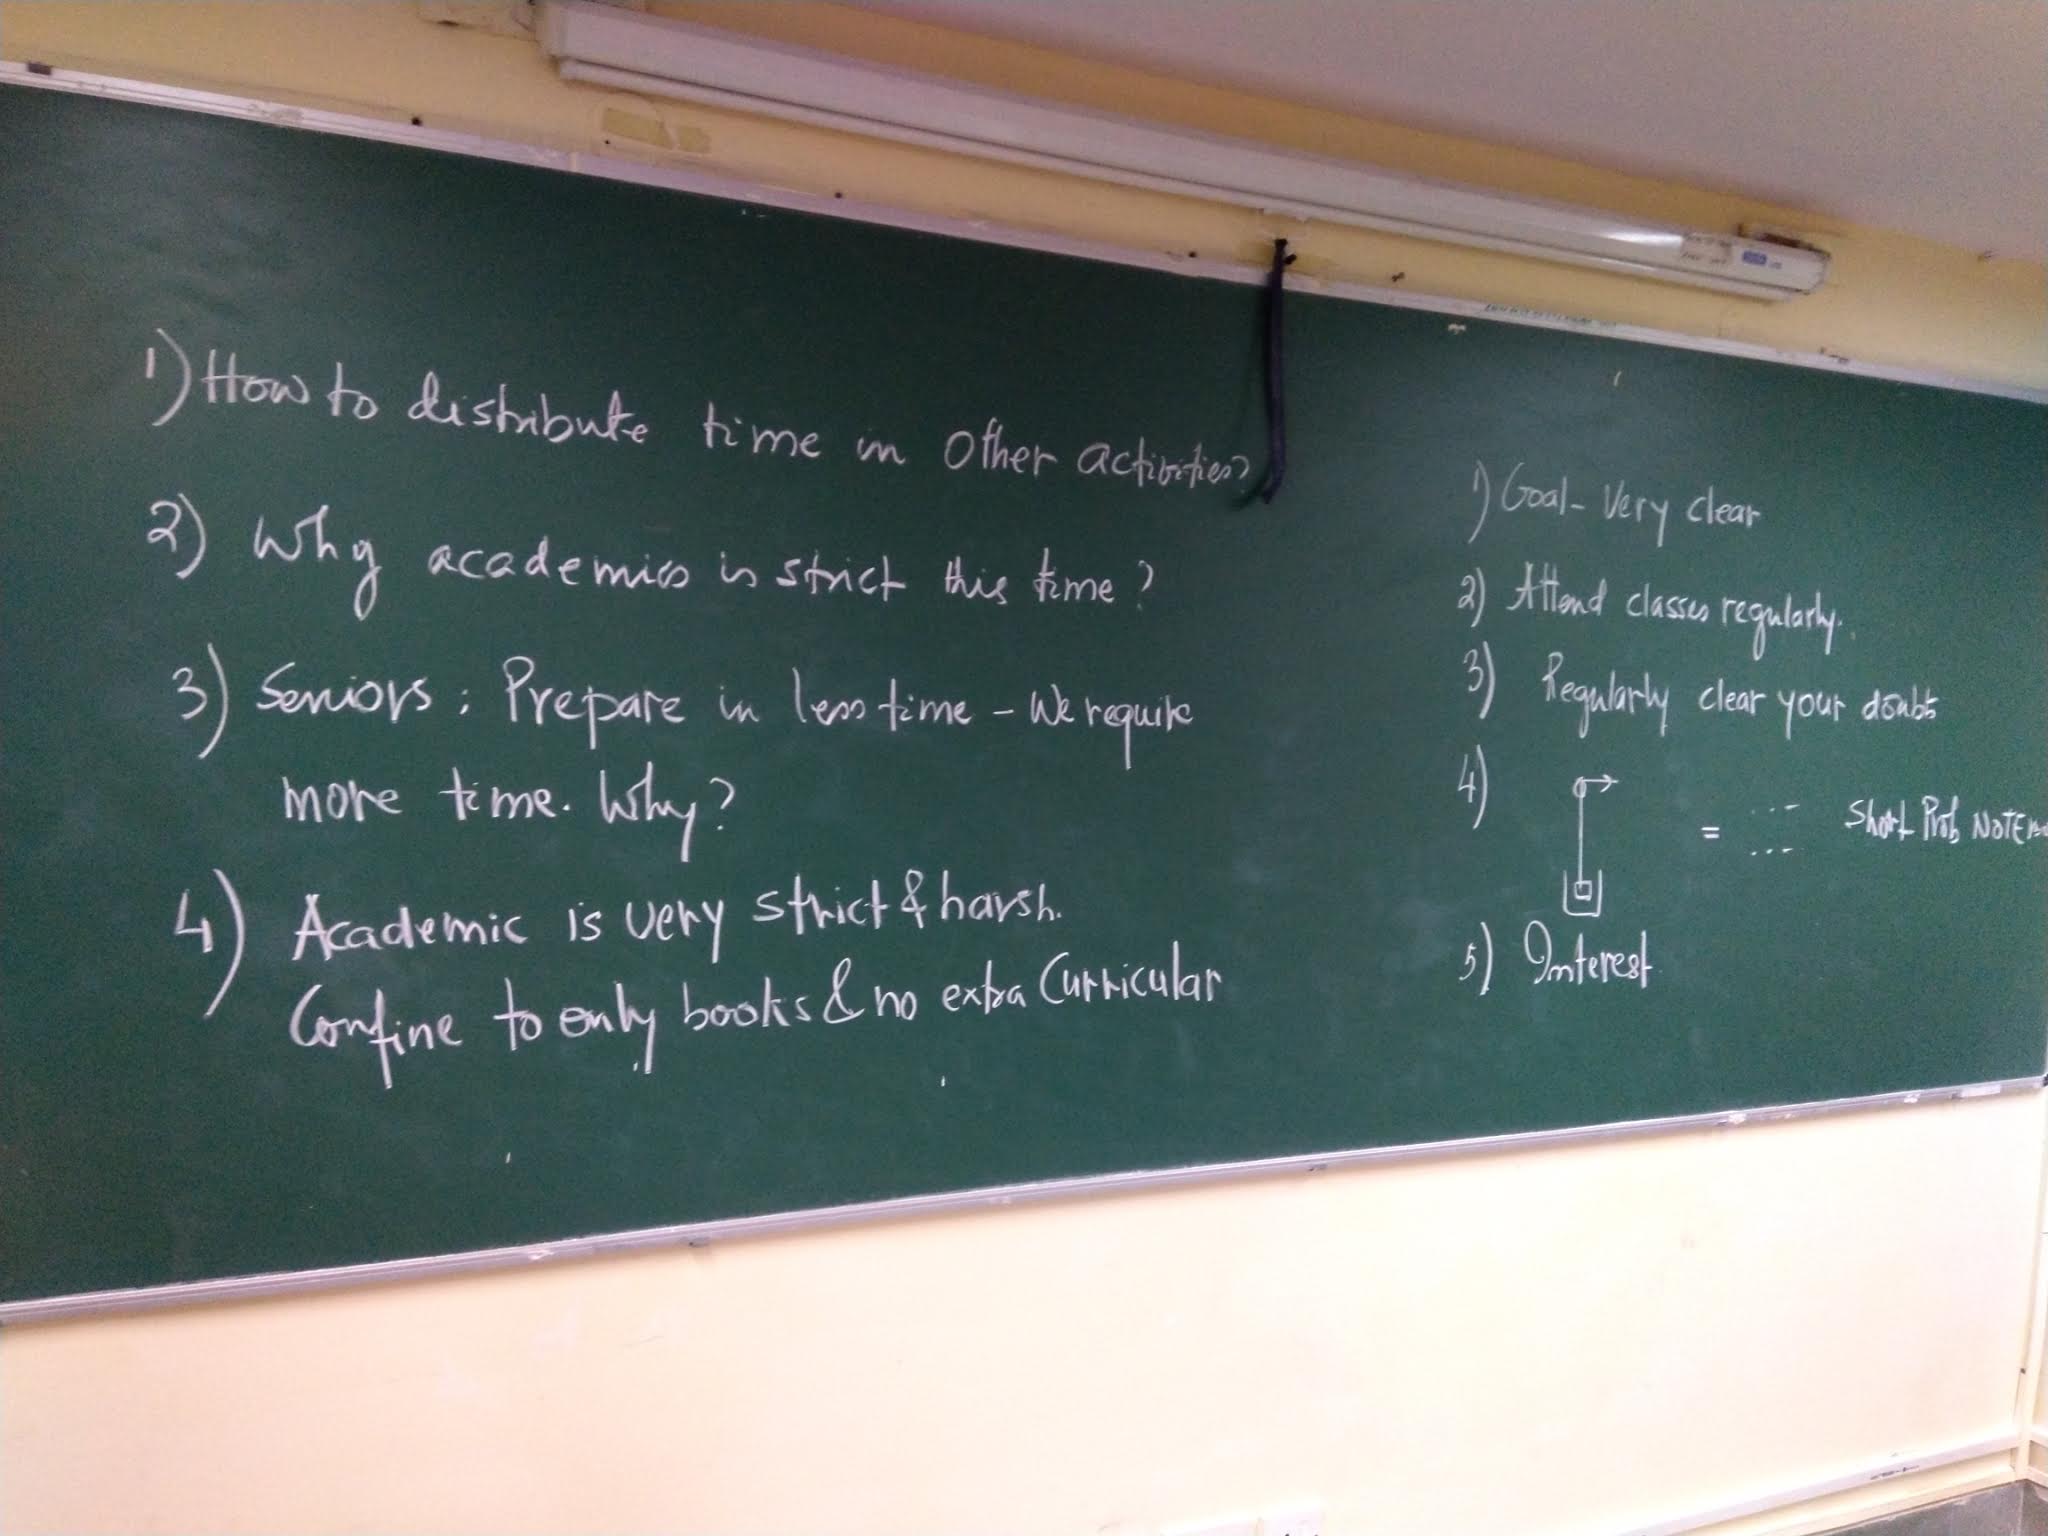 1) How to distribute time in other activities?
2) Why academics is strict this time?
3) Seniors: Prepare in less time - We require
more time. Why?
4) Academic is very strict & harsh.
Confine to only books & no extra Curricular
1) Goal - Very clear
2) Attend classes regularly.
3) Regularly clear your doubts
4)
= Short Prob
5) Interest